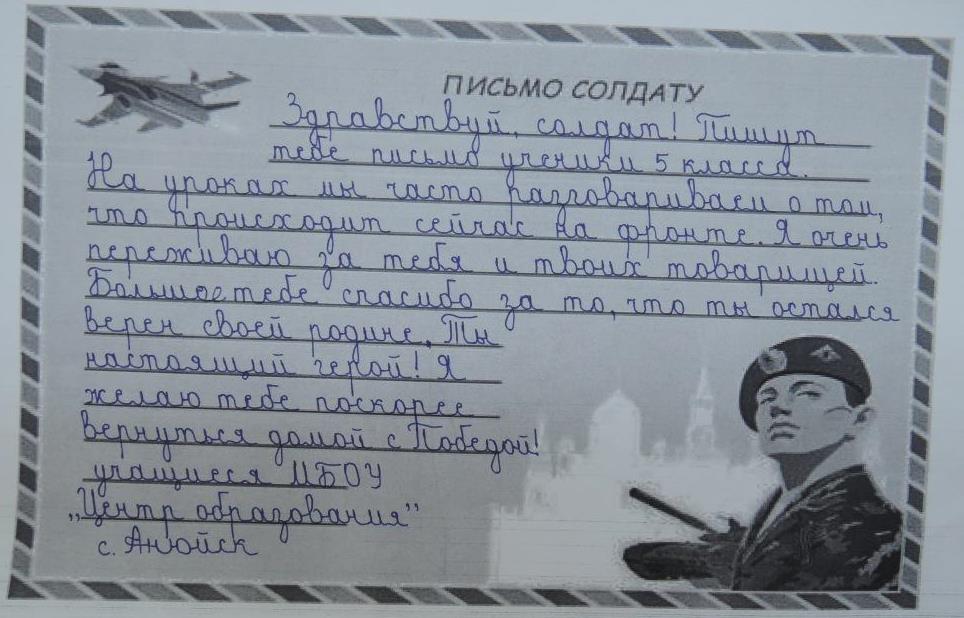 ПИСЬМО СОЛДАТУ
Здравствуй, солдат! Пишут
тебе письмо ученики 5 класса.
На уроках мы часто разговариваем о том,
что происходит сейчас на фронте. Я очень
переживаю за тебя и твоих товарищей.
Большое тебе спасибо за то, что ты остался
верен своей родине. Ты
настоящий герой! Я
желаю тебе поскорее
вернуться домой с Победой!
учащиеся МБОУ
„Центр образования”
с. Анюйск